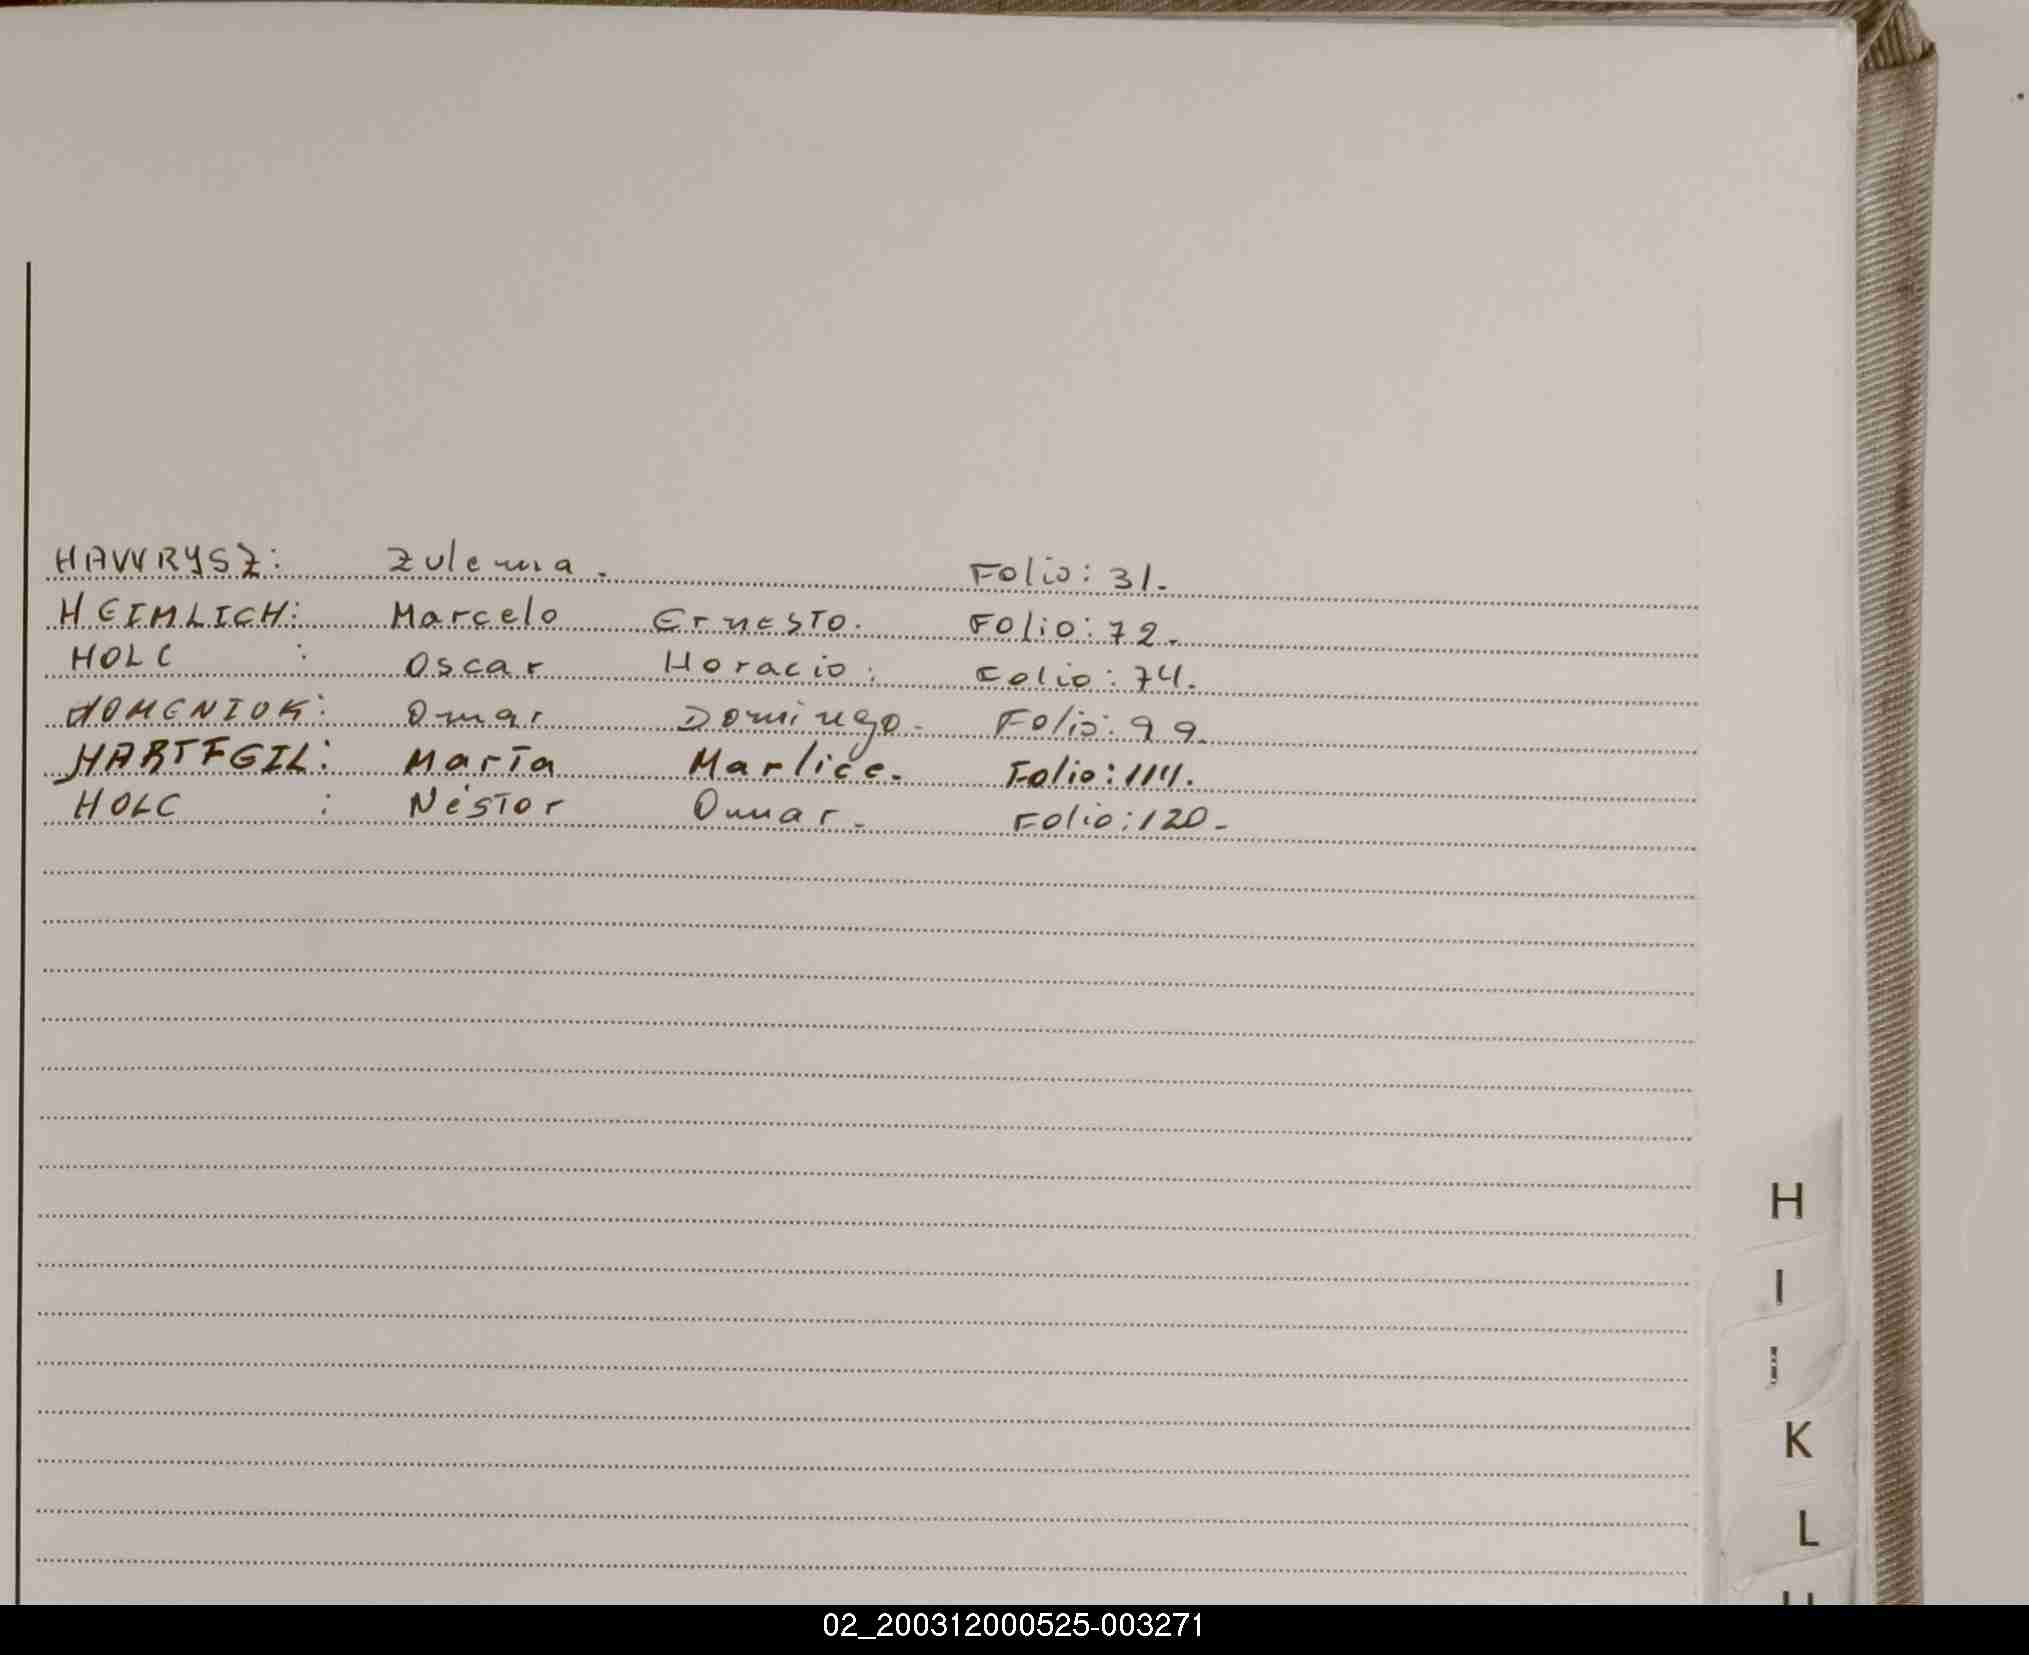 HAWRYSZ: Zulema. Folio: 31.
HEIMLICH: Marcelo Ernesto. Folio: 72.
HOLC : Oscar Horacio. Folio: 74.
HOMENIUK: Omar Domingo. Folio: 99.
HARTFGIL: Marta Marlice. Folio: 114.
HOLC : Néstor Omar. Folio: 120.
H
I
J
K
L
02_200312000525-003271